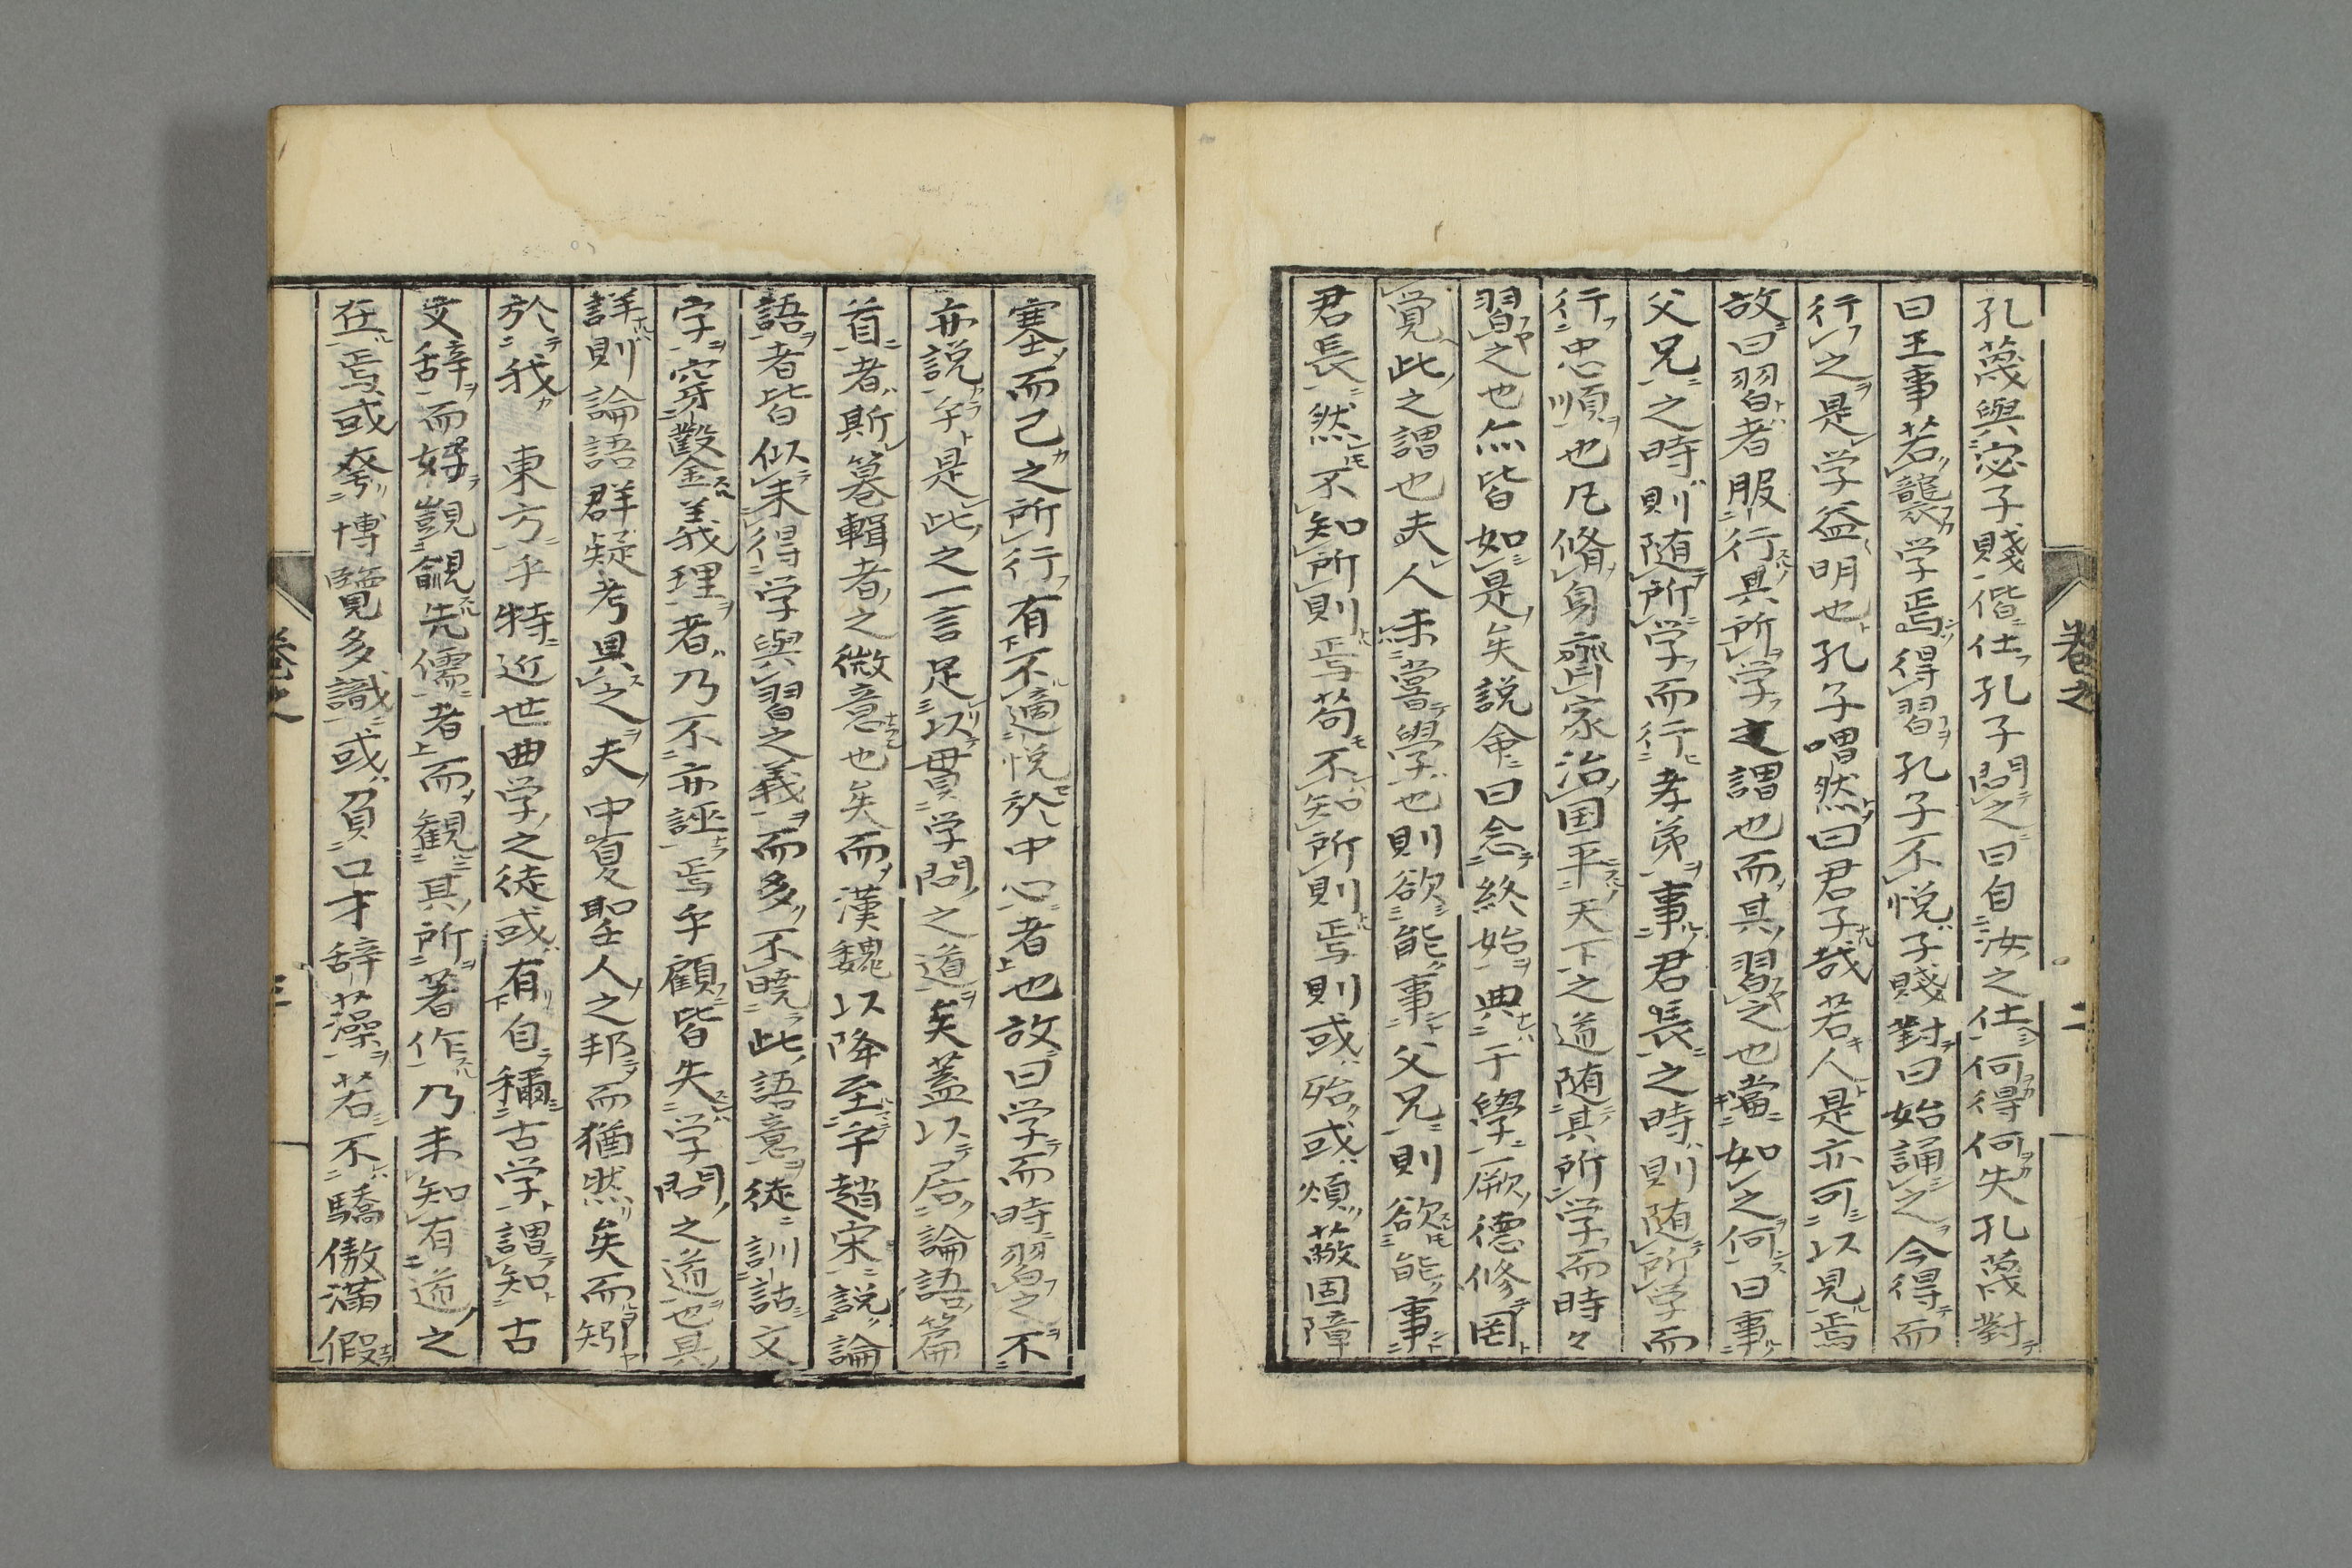 孔蔑與宓子賤偕仕孔子問之曰自汝之仕何得何失孔蔑對
曰王事若襲学焉得習孔子不悦子賤對曰始誦之今得而
行之是学益明也孔子喟然曰君子哉若人是亦可以見焉
故曰習者服行其所学之謂也而其習之也當如之何曰事
父兄之時則随所学而行孝弟事君長之時則随所学而
行忠順也凡脩身齊家治国平天下之道随其所学而時々
習之也無皆如是矣説命曰念終始典于學厥德修罔
覚此之謂也夫人未嘗學也則欲能事父兄則欲能事
君長然不知所則焉苟不知所則焉則或殆或煩蔽固障
塞而己之所行有不適悦於中心者也故曰学而時習之不
亦説乎是此之一言足以貫学問之道矣蓋以居論語篇
首者斯纂輯者之微意也矣而漢魏以降至乎趙宋説論
語者皆似未得学與習之義而多不暁此語意徒訓詁文
字穿鑿義理者乃不亦誣焉乎顧皆失学問之道也具
詳則論語群疑考具之夫中夏聖人之邦而猶然矣而矧
於我 東方乎特近世曲学之徒或有自稱古学謂知古
文辞而好覬覦先儒者而観其所著作乃未知有道之
在焉或夸博覽多識或負口才辞藻若不驕傲滿假
卷之 二
卷之 三